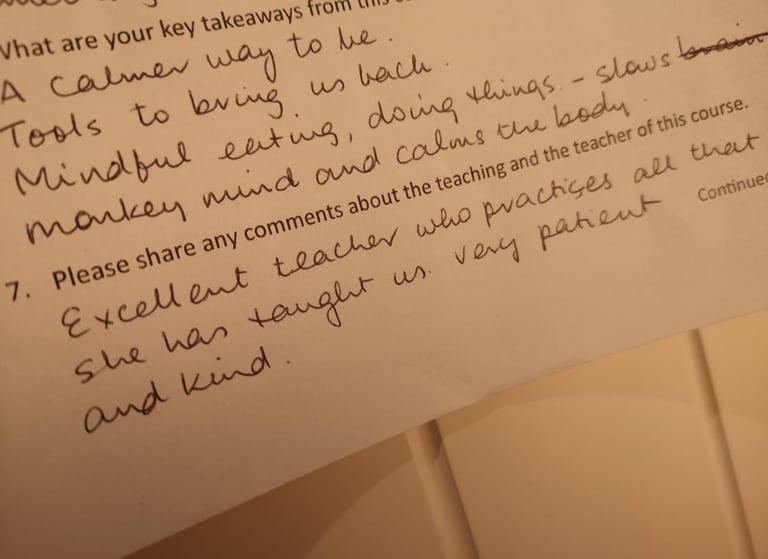 What are your key takeaways from this
A calmer way to be.
Tools to bring us back.
Mindful eating, doing things - slows brain
monkey mind and calms the body.
7. Please share any comments about the teaching and the teacher of this course.
Continued
Excellent teacher who practises all that
she has taught us. very patient
and kind.